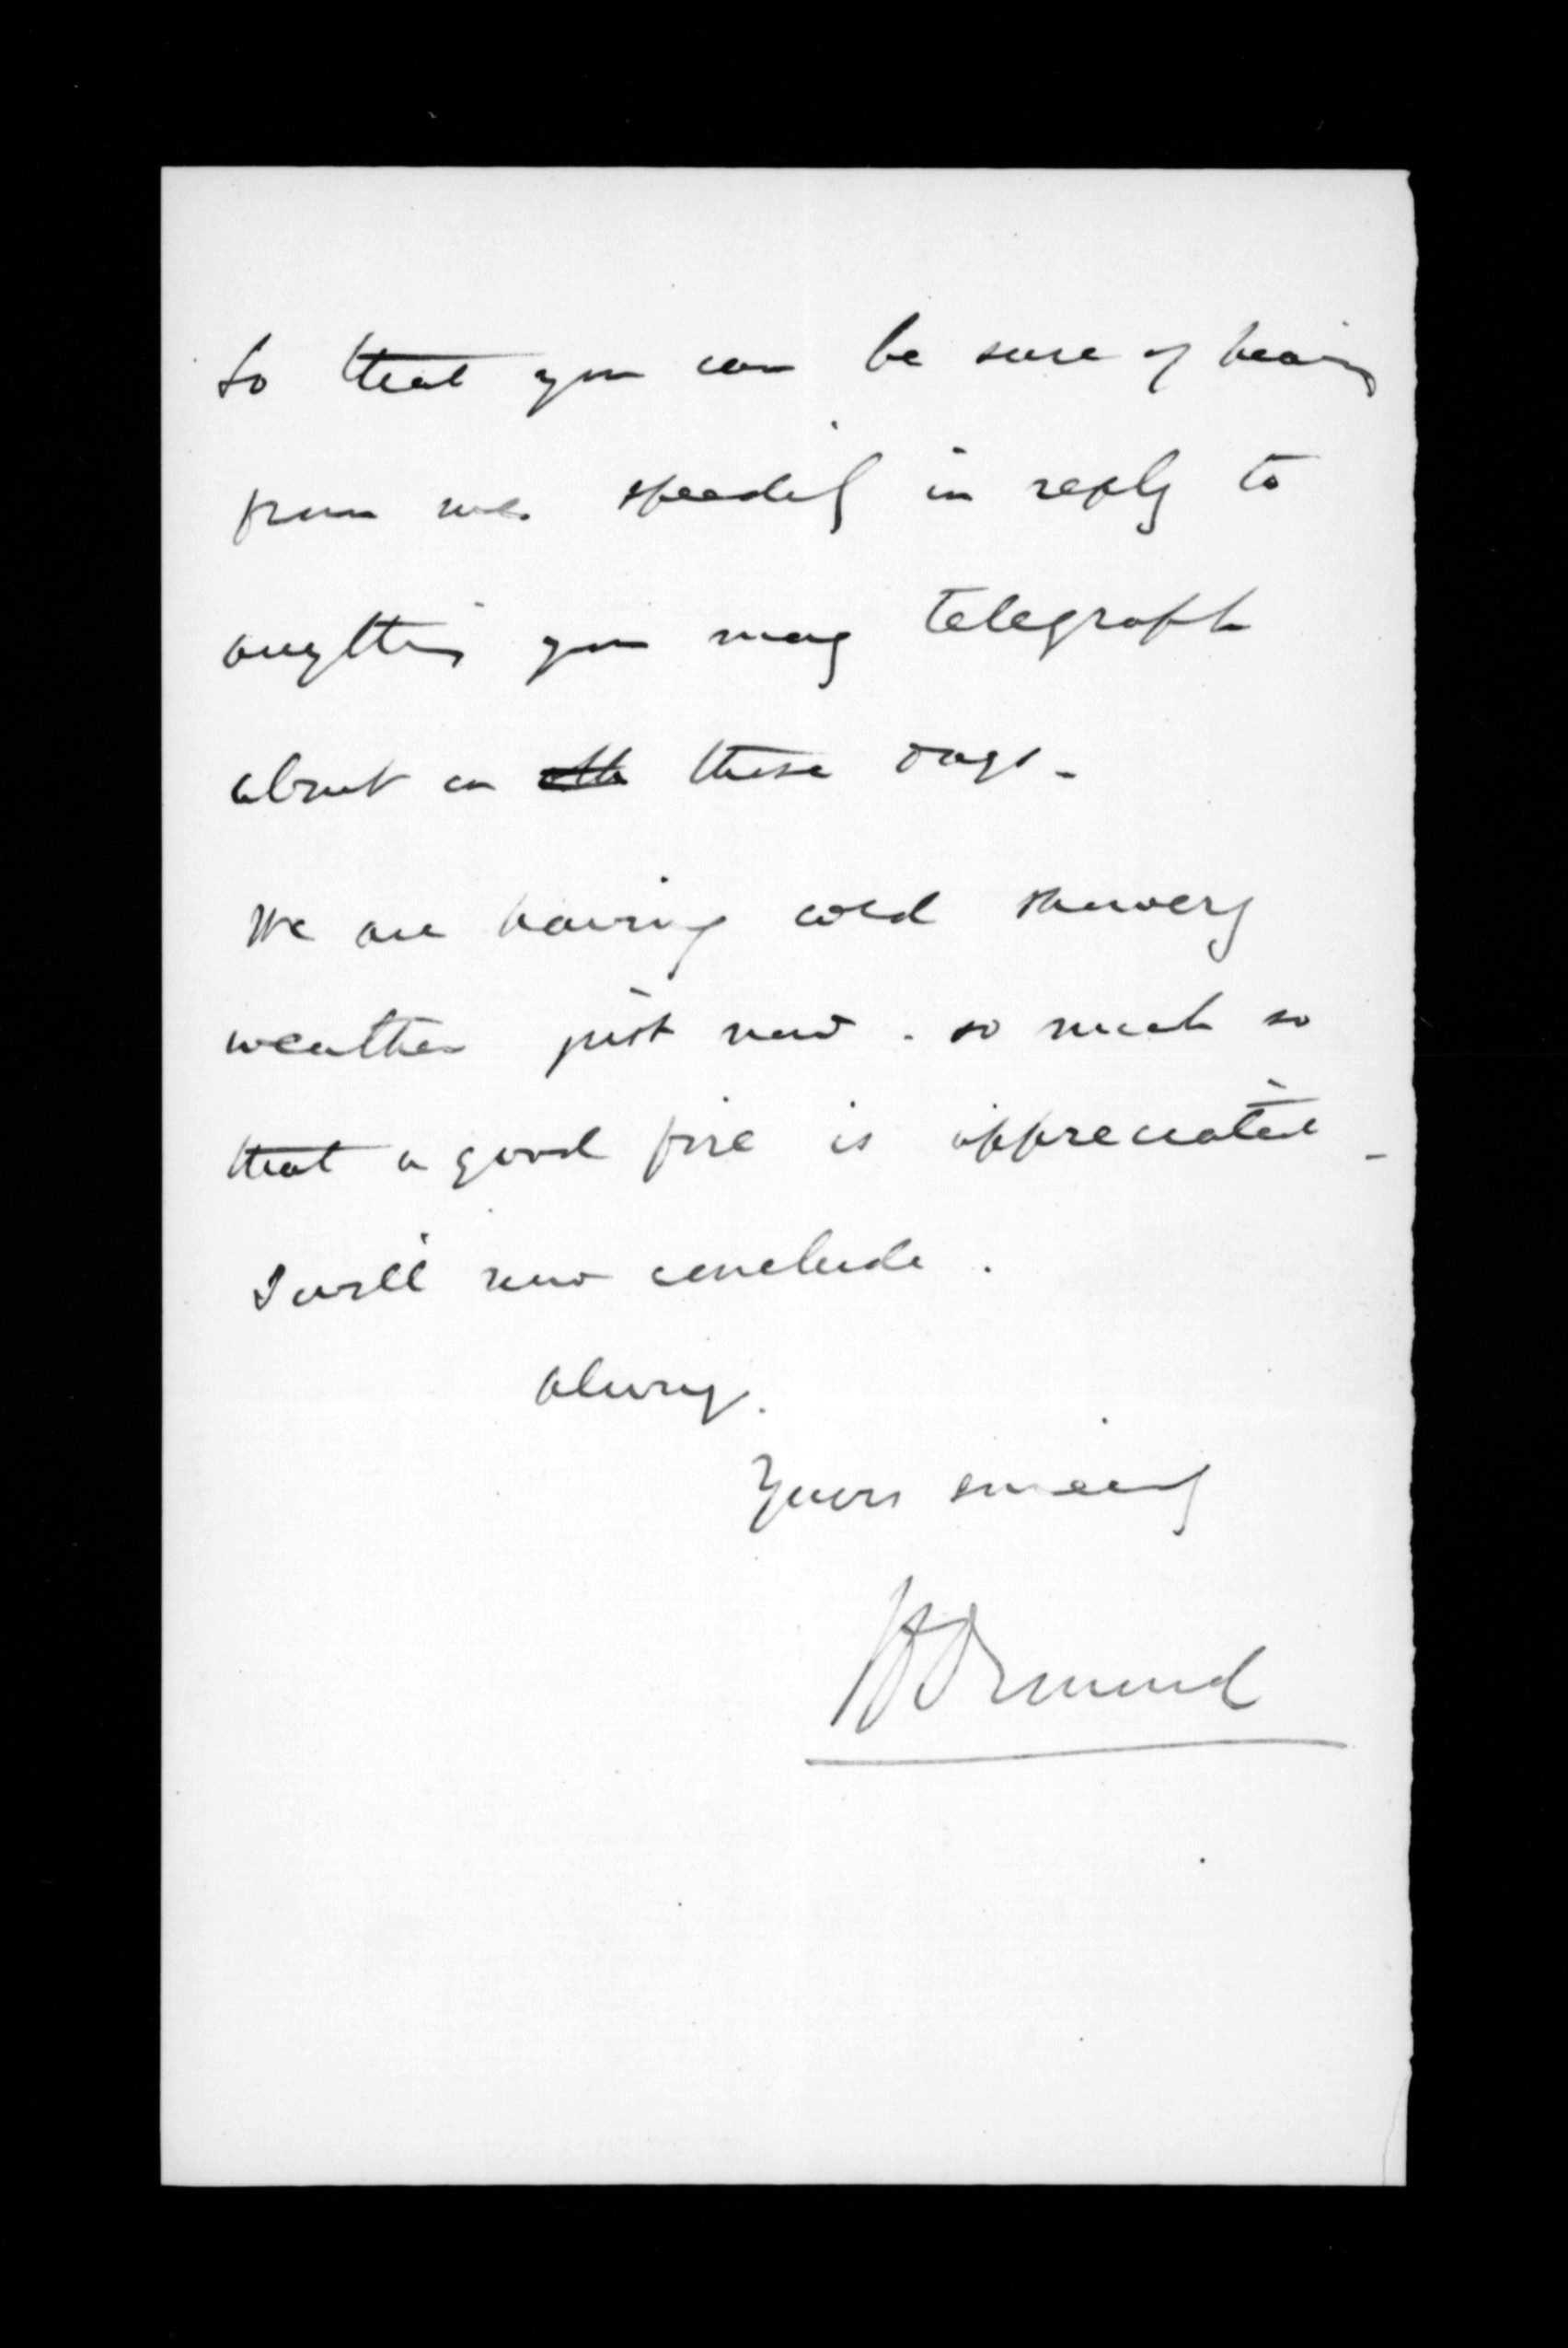 So that you can be sure of hearing
from me speedily in reply to
anything you may telegraph
about on these days.
We are having cold showery
weather just now. so much so
that a good fire is appreciated.
I will now conclude.
Always.
Yours sincerely
Ormond